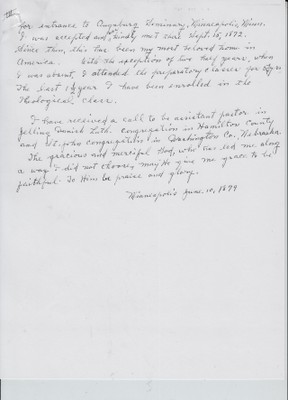 for entrance to Augsburg Seminary, Minneapolis, Minn.
I was accepted and kindly met there Sept. 15, 1872.
Since then, this has been my most beloved home in
America. With the exception of two half years, when
I was absent, I attended the preparatory classes for
The last 1½ year I have been enrolled in the
Theological Class.
I have received a call to be assistant pastor in
Danish Luth. congregation in Hamilton County
and congregation in Washington Co. Nebraska.
The gracious and merciful God, who has led me along
a way I did not choose, may He give me grace to be
faithful. To Him be praise and glory.
Minneapolis June 10, 1879